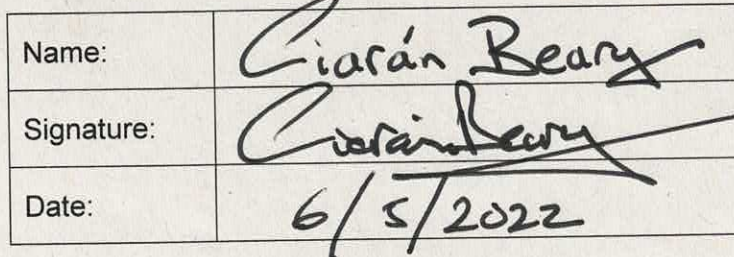 Name: Ciarán Beary
Signature: Ciarán Beary
Date: 6/5/2022